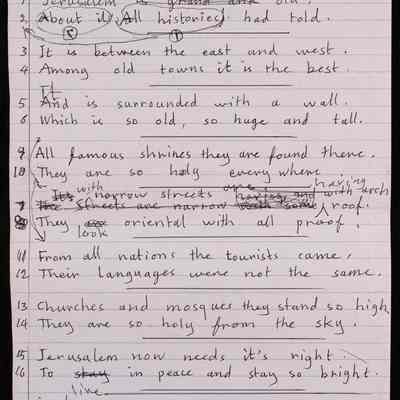 1 Jerusalem is grand and old.
2 About it All histories had told.
2 1
3 It is between the east and west.
4 Among old towns it is the best.
It
5 And is surrounded with a wall.
6 Which is so old, so huge and tall.
9 All famous shrines they are found there.
10 They are so holy every where
Its with narrow streets are having and with arch having
7 The streets are narrow with some roof.
8 They are oriental with all proof.
look
11 From all nations the tourists came,
12 Their languages were not the same.
13 Churches and mosques they stand so high
14 They are so holy from the sky.
15 Jerusalem now needs it's right
16 To stay in peace and stay so bright.
live